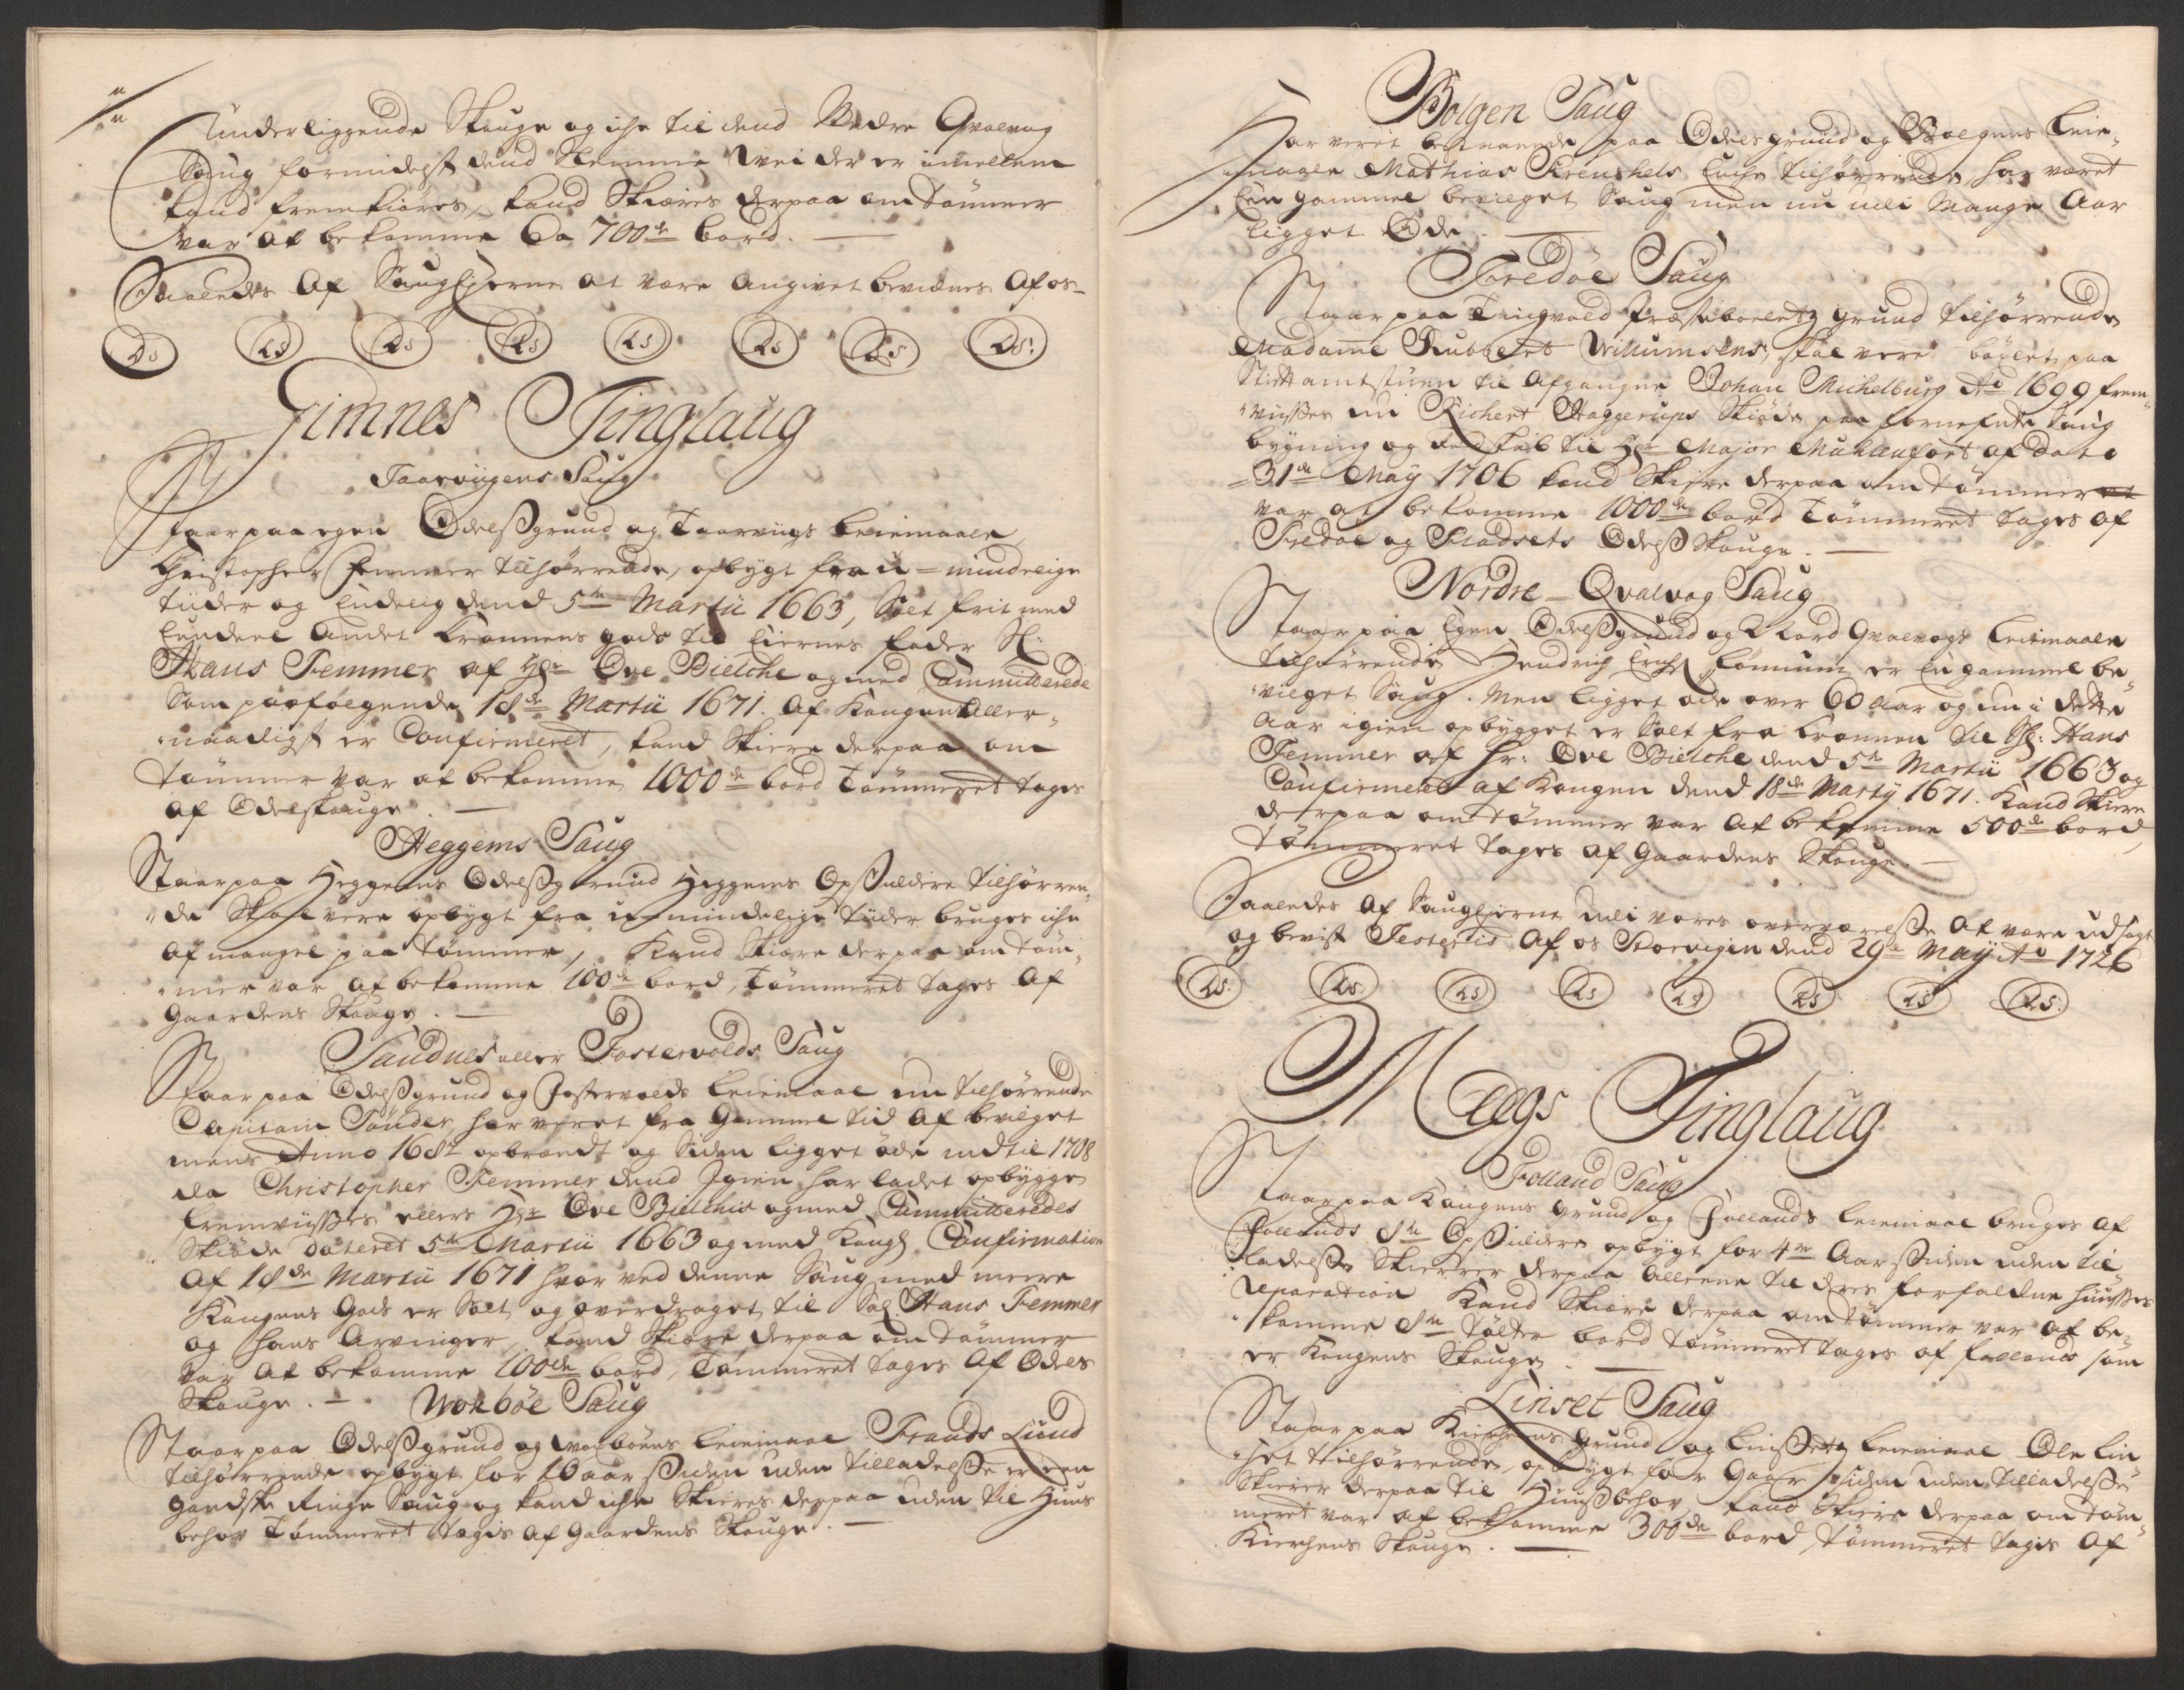 Underliggende Skouge og iche til dend Nedre Qvalvog
Saug formidelst dend Slemme Vei der er imellem
kand fremkiøres, kand Skiæres derpaa om Tømmer
var at bekomme Ca 700de bord. —
Saaledes Af Saugeyerne at være Angivet bevidnes Af os
LS LS LS LS LS LS LS LS:
Gimnes Tinglaug
Taarviigens Saug
Staar paa egen Odelsgrund og Taarviigs leiemaal,
Christopher Femmer tilhørrende, opbygt fra u-mindelige
tiider og Endelig dend 5te Martii 1663, Solt frit med
Eendeel Andet Cronnens gods til Eiernes fader Sl:
Hans Femmer af Hr: Ove Bielche og med Committerede
Som paafølgende 18de Martii 1671. Af Kongen Aller-
naadigst er Confirmeret, kand Skiere derpaa om
Tømmer var at bekomme 1000de bord Tømmeret tages
af Odelskouge. —
Heggems Saug
Staar paa Heggems Odelsgrund Heggems Opsiddere tilhørren-
de Skal vere opbygt fra u-mindelige tiider bruges iche
af mangel paa tømmer, Kand Skiære derpaa om tøm-
mer var at bekomme 100de bord, Tømmeret tages Af
Gaardens Skouge. —
Sandnes eller Fostervolds Saug
Staar paa Odelsgrund og Fostervolds leiemaal nu tilhørrende
Capitain Tønder, har veret fra Gammel tid Af bevilget
mens Anno 1682 opbrændt og Siden ligget øde indtil 1708
da Christopher Femmer dend Igien har ladet opbygge
fremviisses ellers Hr: Ove Bielchis og med Committeredes
Skiøde dateret 5te Martii 1663 og med Kongl: Confirmation
Af 18de Martii 1671 hvor ved denne Saug med meere
Kongens Gods er Solt og overdraget til Sal: Hans Femmer
og hans Arvinger, kand Skiære derpaa om tømmer
var at bekomme 100de bord, Tømmeret tages Af Odels
Skouge. —
Vorbøe Saug
Staar paa Odelsgrund og Vorbøens leiemaal Frands Lund
tilhørrende opbygt for 10 aar Siden uden tilladelsse er een
gandske Ringe Saug og kand iche Skieres derpaa uden til Huus
behov Tømmeret tagis af Gaardens Skouge. —
Bolgen Saug
Har veret bestaaende paa Odelsgrund og Bolgens leie-
maale Mathias Krenshels Enche tilhørrende, har været
Een gammel bevilget Saug men nu udi Mange Aar
ligget Øde. —
Fredøe Saug
Staar paa Tingvold Præsteboeletz grund tilhørrende
Madame Rubbert Willumsens, skal vere bøxlet paa
Stiftamtstuen til Afgangne Johan Michelburg Ao 1699 frem-
viisses nu Richert Haggerups Skiøde paa fornefnte Saug
bygning og Redskab til Hr: Major Mühlenport af dato
31de May 1706 kand Skiere derpaa om tømmeret
var at bekomme 1000de bord Tømmeret tages af
Fredøe og Fladsets Odels Skouge. —
Nordre - Qvalvog Saug
Staar paa Egen Odelsgrund og Nord Qvalvogs leiemaale
tilhørrende Hendrich Erichs: Lønnum er Een gammel be-
vilget Saug. Men ligget øde over 60 aar og nu i dette
Aar igien opbygget er Solt fra Cronnen til Sl: Hans
Femmer af Hr: Ove Bielche dend 5te Martii 1663 og
Confirmeret af Kongen dend 18de Martij 1671. Kand Skiere
derpaa om tømmer var At bekomme 500de bord,
Tømmeret tages Af Gaardens Skouge. —
Saaledes Af Saugeyerne udi vores overværelsse At være udsagt
og bevist Testerlis Af os Storvigen dend 29de May Ao 1726
LS: LS: LS LS LS LS LS LS:
Meegs Tinglaug
Folland Saug
Staar paa Kongens Grund og Follands leiemaal bruges af
Follands 8te Opsiddere opbygt for 4re Aar siden uden til-
ladelsse Skierer derpaa Alleene til deres forfaldne huusses
Reparation Kand Skiere derpaa om tømmer var at be-
komme 8te tolter bord tømmeret tages af Follands som
er Kongens Skouge. —
Linset Saug
Staar paa Kierchens Grund og Linssetz leiemaal Ole Lin-
set tilhørrende, opbygt for 9 aar siden uden tilladelsse
Skierer derpaa til Huusbehov, kand Skiere derpaa om tøm-
meret var at bekomme 300de bord, tømmeret tagis Af
Kierchens Skouge. —